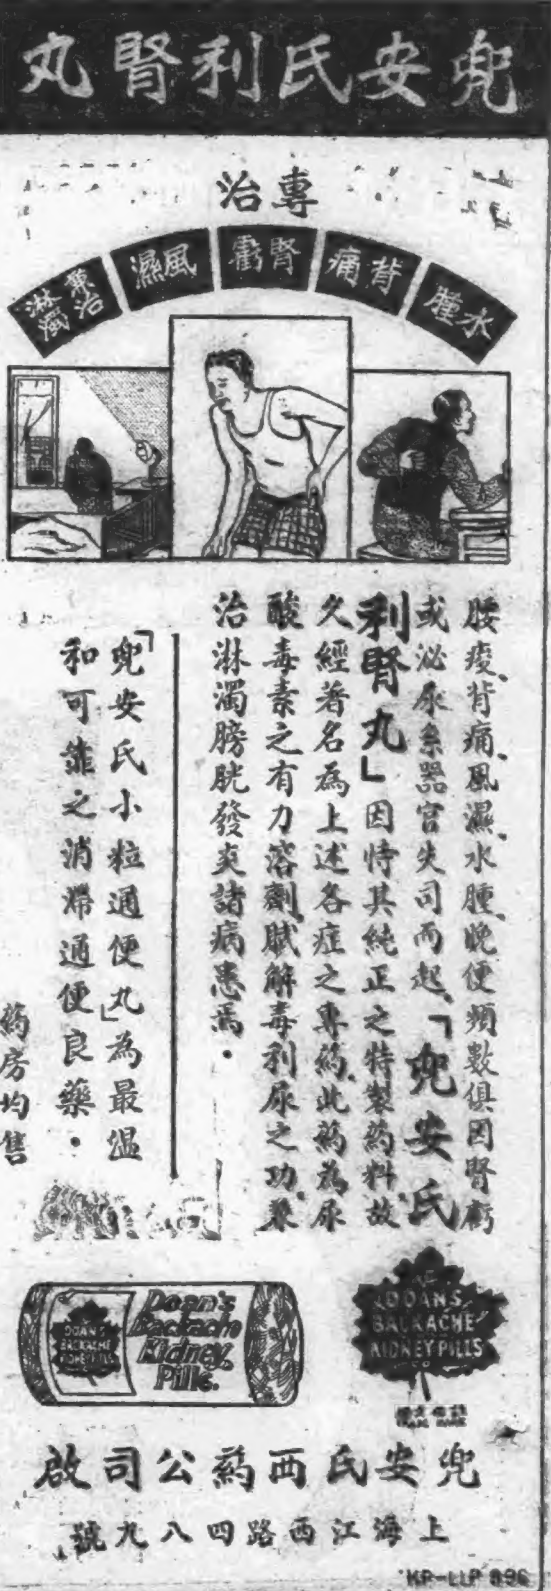 兜安氏利腎丸
專治
水腫
背痛
腎虧
風濕
兼治淋濁
腰痠、背痛、風濕、水腫、晚便頻數俱因腎虧
或泌尿系器官失司而起、「兜安氏
利腎丸」因恃其純正之特製药料故
久經著名為上述各症之專药、此药為尿
酸毒素之有力溶劑、賦解毒利尿之功、兼
治淋濁膀胱發炎諸病患焉．
「兜安氏小粒通便丸」為最溫
和可靠之消滯通便良藥．
药房均售
DOAN'S
BACKACHE
KIDNEY PILLS
Doan's
Backache
Kidney
Pills.
DOANS
BACKACHE
KIDNEY PILLS
兜安氏西药公司啟
上海江西路四八九號
KP-LLP 896